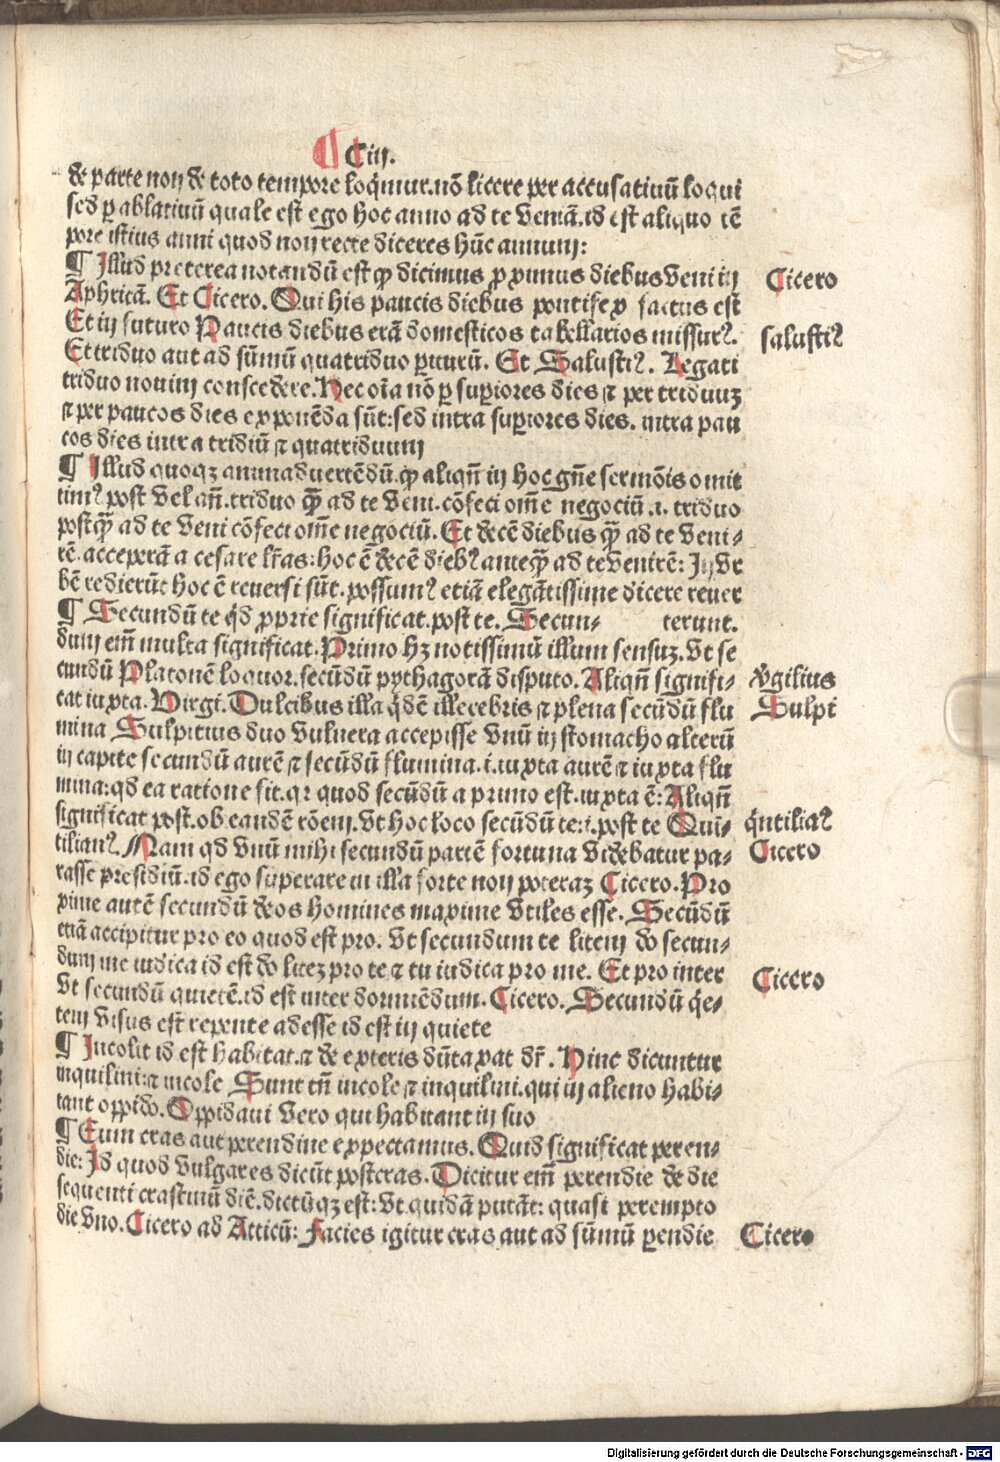 ¶ Ciij.
de parte non de toto tempore loq̄mur. nō licere per accusatiuū loqui
sed ꝑ ablatiuū quale est ego hoc anno ad te veniā. id est aliquo tē
pore istius anni quod non recte diceres hūc annum:
¶ Illud preterea notandū est ꝙ dicimus ꝓximus diebus veni in
Cicero
Aphricā. Et Cicero. Qui his paucis diebus pontifex factus est
Et in futuro Paucis diebus erā domesticos tabellarios missurꝰ.
salustiꝰ
Et triduo aut ad sūmū quatriduo ꝑiturū. Et Salustiꝰ. Legati
triduo nouim conscedere. Nec oīa nō ꝑ suꝑiores dies ⁊ per triduuꝫ
⁊ per paucos dies exponēda sūt: sed intra suꝑiores dies. intra pau
cos dies intra tridiū ⁊ quatriduum
¶ Illud quoqꝫ animaduertēdū. ꝙ aliqn̄ in hoc gn̄e sermōis omit
timꝰ post vel an̄. triduo q̄ꝫ ad te veni. cōfeci om̄e negociū .i. triduo
postq̄ꝫ ad te veni cōfeci om̄e negociū. Et decē diebus q̄ꝫ ad te veni-
rē. acceperā a cesare lr̄as: hoc ē decē diebꝰ anteq̄ꝫ ad te venirē: In vr
bē redierūt hoc ē reuersi sūt. possumꝰ etiā elegātissime dicere reuer
¶ Secundū te q̇d ꝓprie significat. post te. Secun- terunt.
dum em̄ multa significat. Primo hꝫ notissimū illum sensuꝫ. Vt se
cundū Platonē loquor. secūdū pythagorā disputo. Aliqn̄ signifi-
v̇gilius
cat iuxta. Virgi. Dulcibus illa q̇dē illecebris ⁊ plena secūdū flu
Sulpi
mina Sulpitius duo vulnera accepisse vnū in stomacho alterū
in capite secundū aurē ⁊ secūdū flumina .i. iuxta aurē ⁊ iuxta flu
mina: qd ea ratione fit. qr quod secūdū a primo est. iuxta ē: Aliqn̄
significat post. ob eandē rōem. Vt hoc loco secūdū te: .i. post te Qui-
q̇ntiliaꝰ
tilianꝰ. Nam qd vnū mihi secundū patrē fortuna videbatur pa-
Cicero
rasse presidiū. id ego superare in illa sorte non poteraꝫ Cicero. Pro
xime autē secundū deos homines maxime vtiles esse. Secūdū
etiā accipitur pro eo quod est pro. vt secundum te litem do secun-
dum me iudica id est do liteꝫ pro te ⁊ tu iudica pro me. Et pro inter
Cicero
Vt secundū quietē. id est inter dormiēdum. Cicero. Secundū q̇e-
tem visus est repente adesse id est in quiete
¶ Incolit id est habitat. ⁊ de exteris dūtaxat dr̄. Hinc dicuntur
inquilini: ⁊ incole Sunt tn̄ incole ⁊ inquilini. qui in alieno habi-
tant oppido. Oppidani vero qui habitant in suo
¶ Eum cras aut perendine expectamus. Quid significat peren-
die: Id quod vulgares dicūt postcras. Dicitur em̄ perendie de die
sequenti crastinū diē. dictūqꝫ est: Vt quidā putāt: quasi perempto
die vno. Cicero ad Atticū: Facies igitur cras aut ad sūmū ꝑendie
Cicero
Digitalisierung gefördert durch die Deutsche Forschungsgemeinschaft - DFG